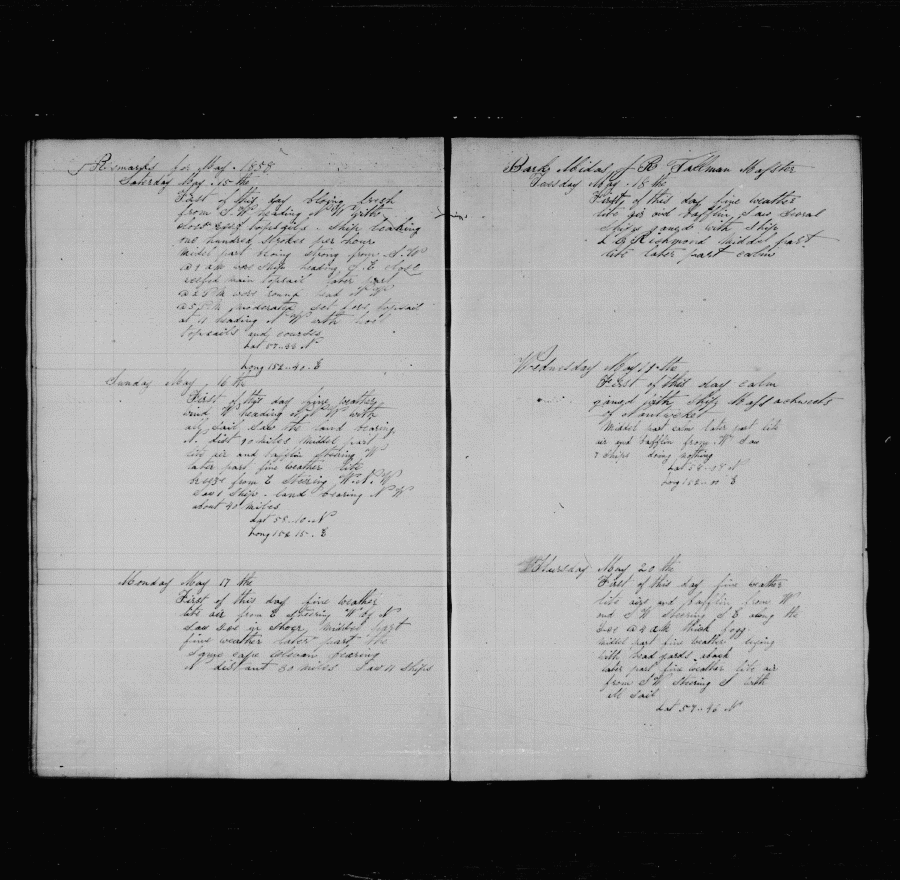 Remarks for May. 1858
Saturday May. 15 the
First of this day bloing fresh
from S.W. heading N W with
close topsails. Ship leaking
one hundred strokes per hour
Middel part bloing strong from N.W
ship heading
main topsail later part
@ 2 P M wore round head N W
@ 5 P M moderated set fore topsail
at 12 heading N W with hool
topsails and courses
Lat 57.. N
Long 152..40. E
Sunday May, 16 the
First of this day fine weather
wind W heading W with
all sail Saw the land bearing
N. dist 90 miles Middel part
lite air and bafflin Steering W
later part fine weather lite
from E Steering W.N.W
Saw 1 Ship. land bearing N W
about 40 miles
Lat 58..10.. N
Long 152 15.. E
Monday May 17 the
First of this day fine weather
lite air from E Steering W by N
Saw in Shore, Middel part
fine weather later part the
same cape bearing
N distant 30 miles Saw 11 Ships
Bark Midas, J R Tallman Master
Tuesday May. 18 the
First of this day fine weather
lite air and bafflin, Saw several
Ships gamed with Ship
L C Richmond Middel part
lite later part calm
Wednesday May 19 the
First of this day calm
gamed with Ship Massachusets
of Nantucket
Middel part calm later part lite
air and bafflin from W Saw
7 Ships doing nothing
Lat 58.. N
Long 152.. E
Thursday May 20 the
First of this day fine weather
lite airs and bafflin from W
and S W Steering S E along the
@ 4 a M thick fogg
Middel part fine weather lying
with head yards aback
later part fine weather lite air
from S W Steering S with
all Sail
Lat 57..46 N